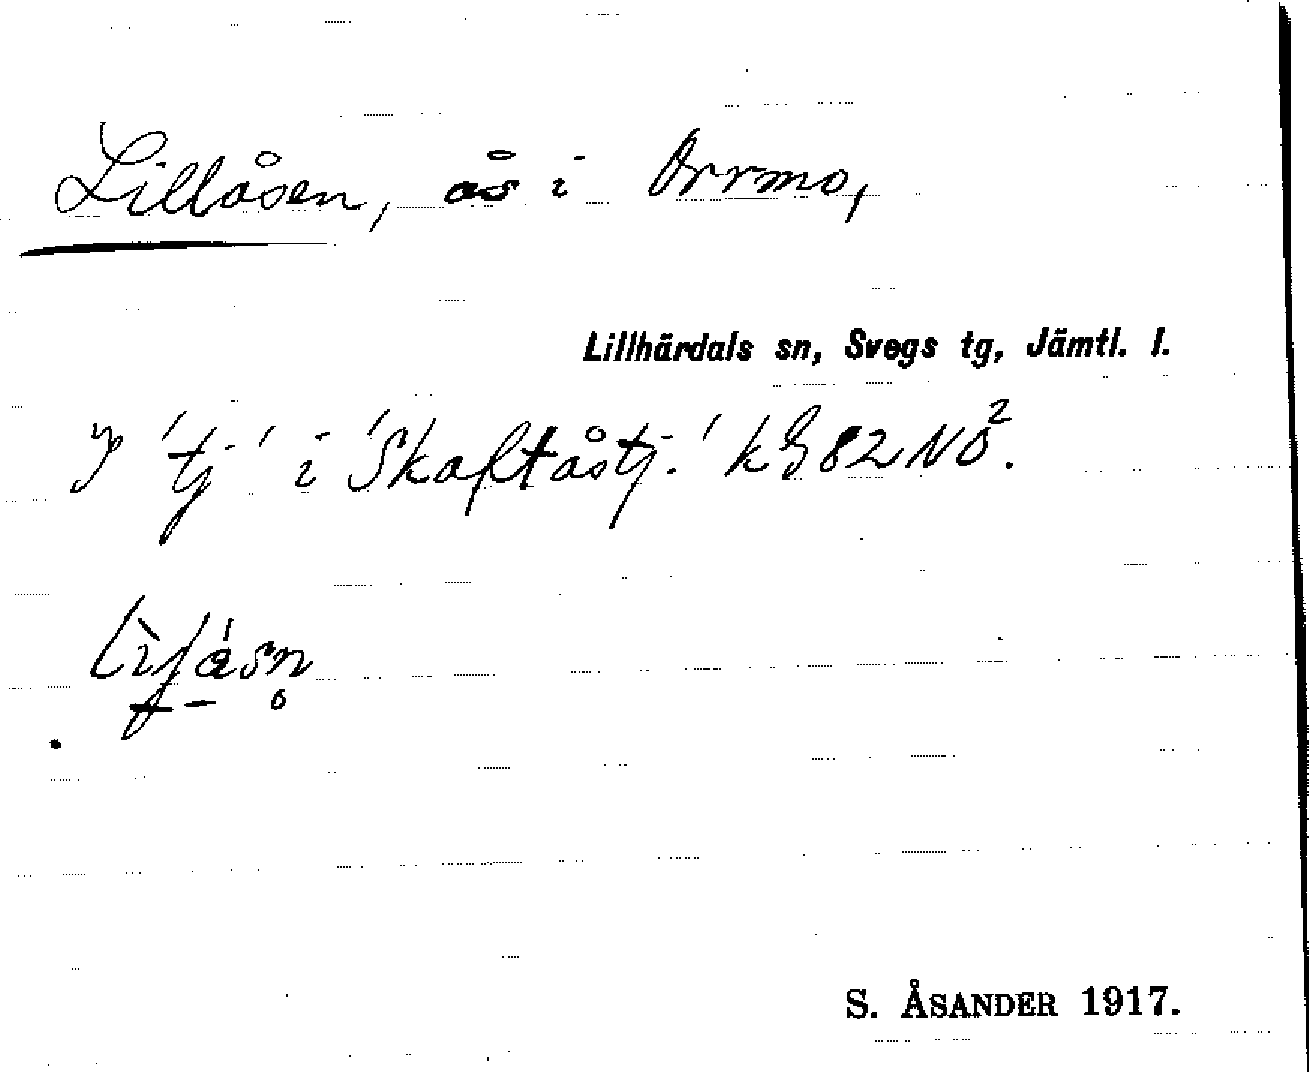 Lillåsen, ås i Orrmo,
Lillhärdals sn, Svegs tg, Jämtl. l.
'tj' i 'Skaftåstj.' kg 82 NO².
S. ÅSANDER 1917.